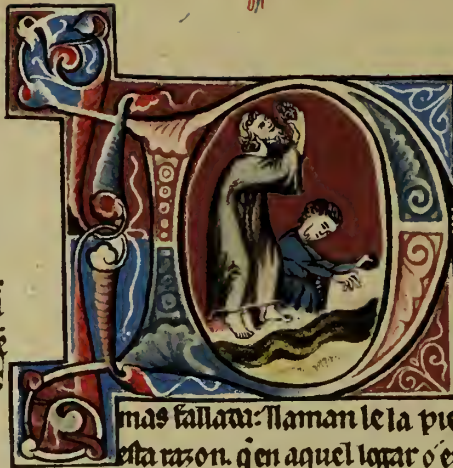 mas fallada: llaman le la pie
esta razon. q̄ en aquel logar o e